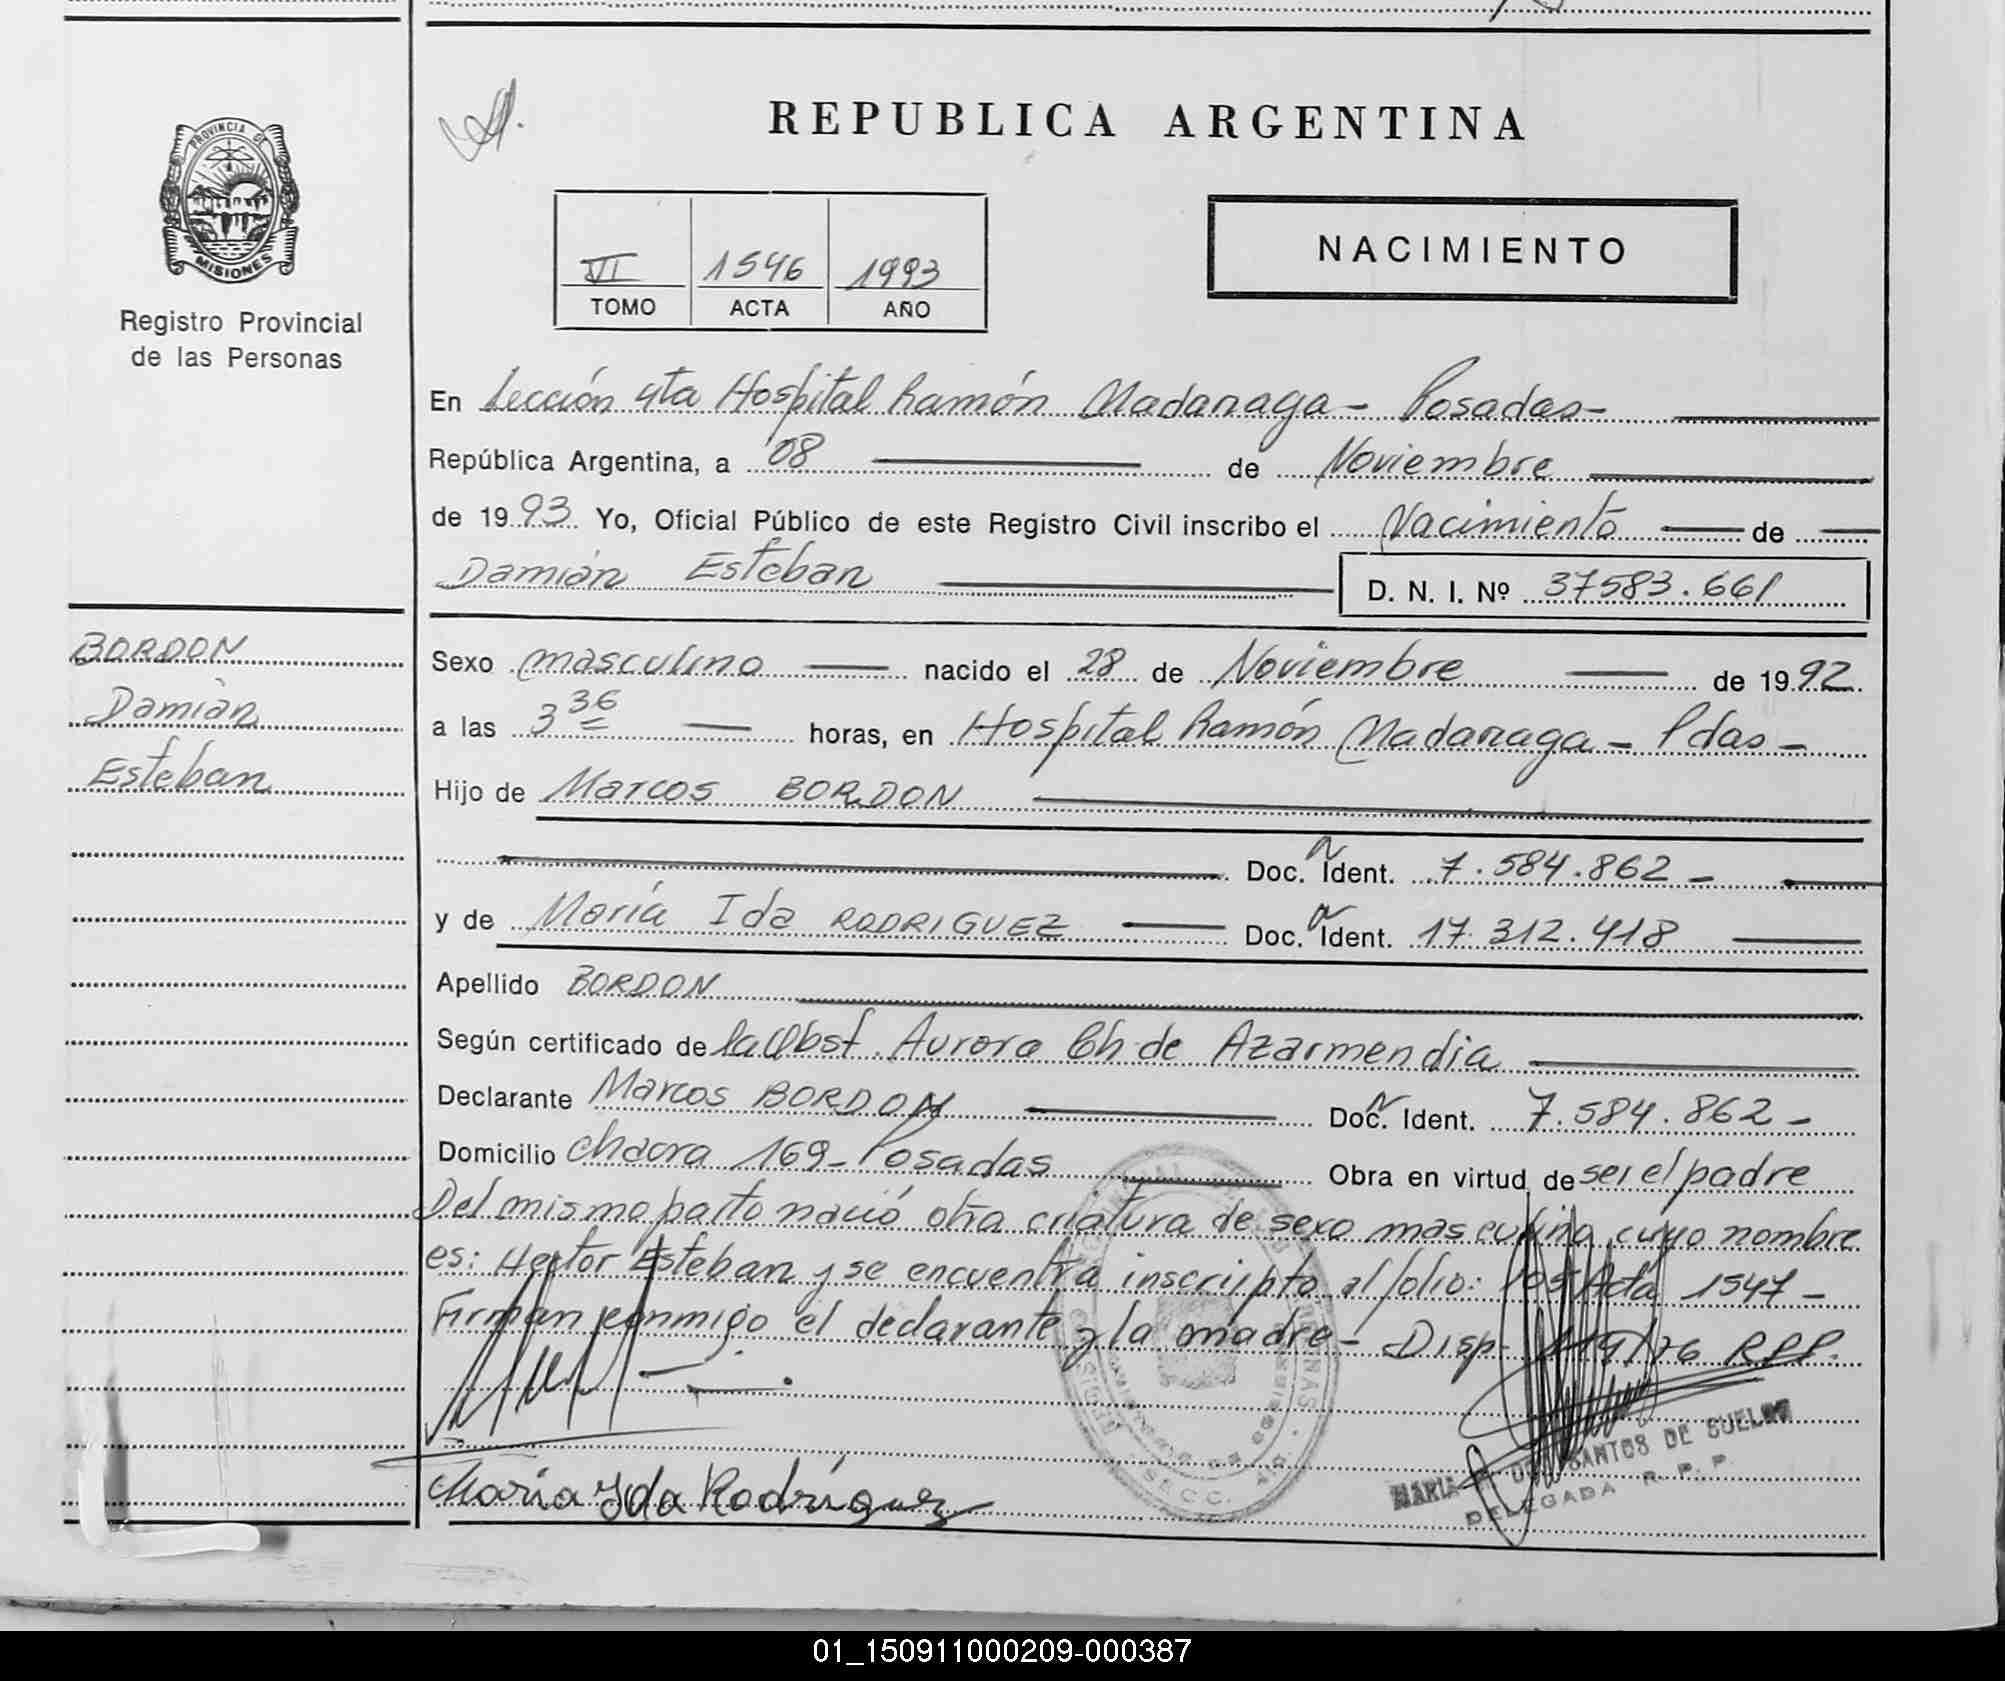 PROVINCIA DE
MISIONES
Registro Provincial
de las Personas
REPUBLICA ARGENTINA
VI 1546 1993
TOMO ACTA AÑO
NACIMIENTO
En Sección 4ta Hospital Ramón Madariaga - Posadas-
República Argentina, a 08 de Noviembre
de 1993 Yo, Oficial Público de este Registro Civil inscribo el Nacimiento de
Damián Esteban D. N. I. Nº 37583.661
BORDON
Damián
Esteban
Sexo masculino nacido el 28 de Noviembre de 1992
a las 3 36 horas, en Hospital Ramón Madariaga - Pdas -
Hijo de Marcos BORDON
Doc. Ident. 7.584.862 -
y de María Ida RODRIGUEZ Doc. Ident. 17.312.418
Apellido BORDON
Según certificado de la Obst. Aurora Ch de Azarmendia
Declarante Marcos BORDON Doc. Ident. 7.584.862 -
Domicilio Chacra 169 - Posadas Obra en virtud de ser el padre
Del mismo parto nació otra criatura de sexo masculino cuyo nombre
es: Hector Esteban y se encuentra inscripto al folio: 105 Acta 1547 -
Firman conmigo el declarante y la madre - Disp. 119/76 RPP.
MARIA DOS SANTOS DE SUELOS
DELEGADA R. P. P.
María Ida Rodríguez
01_150911000209-000387